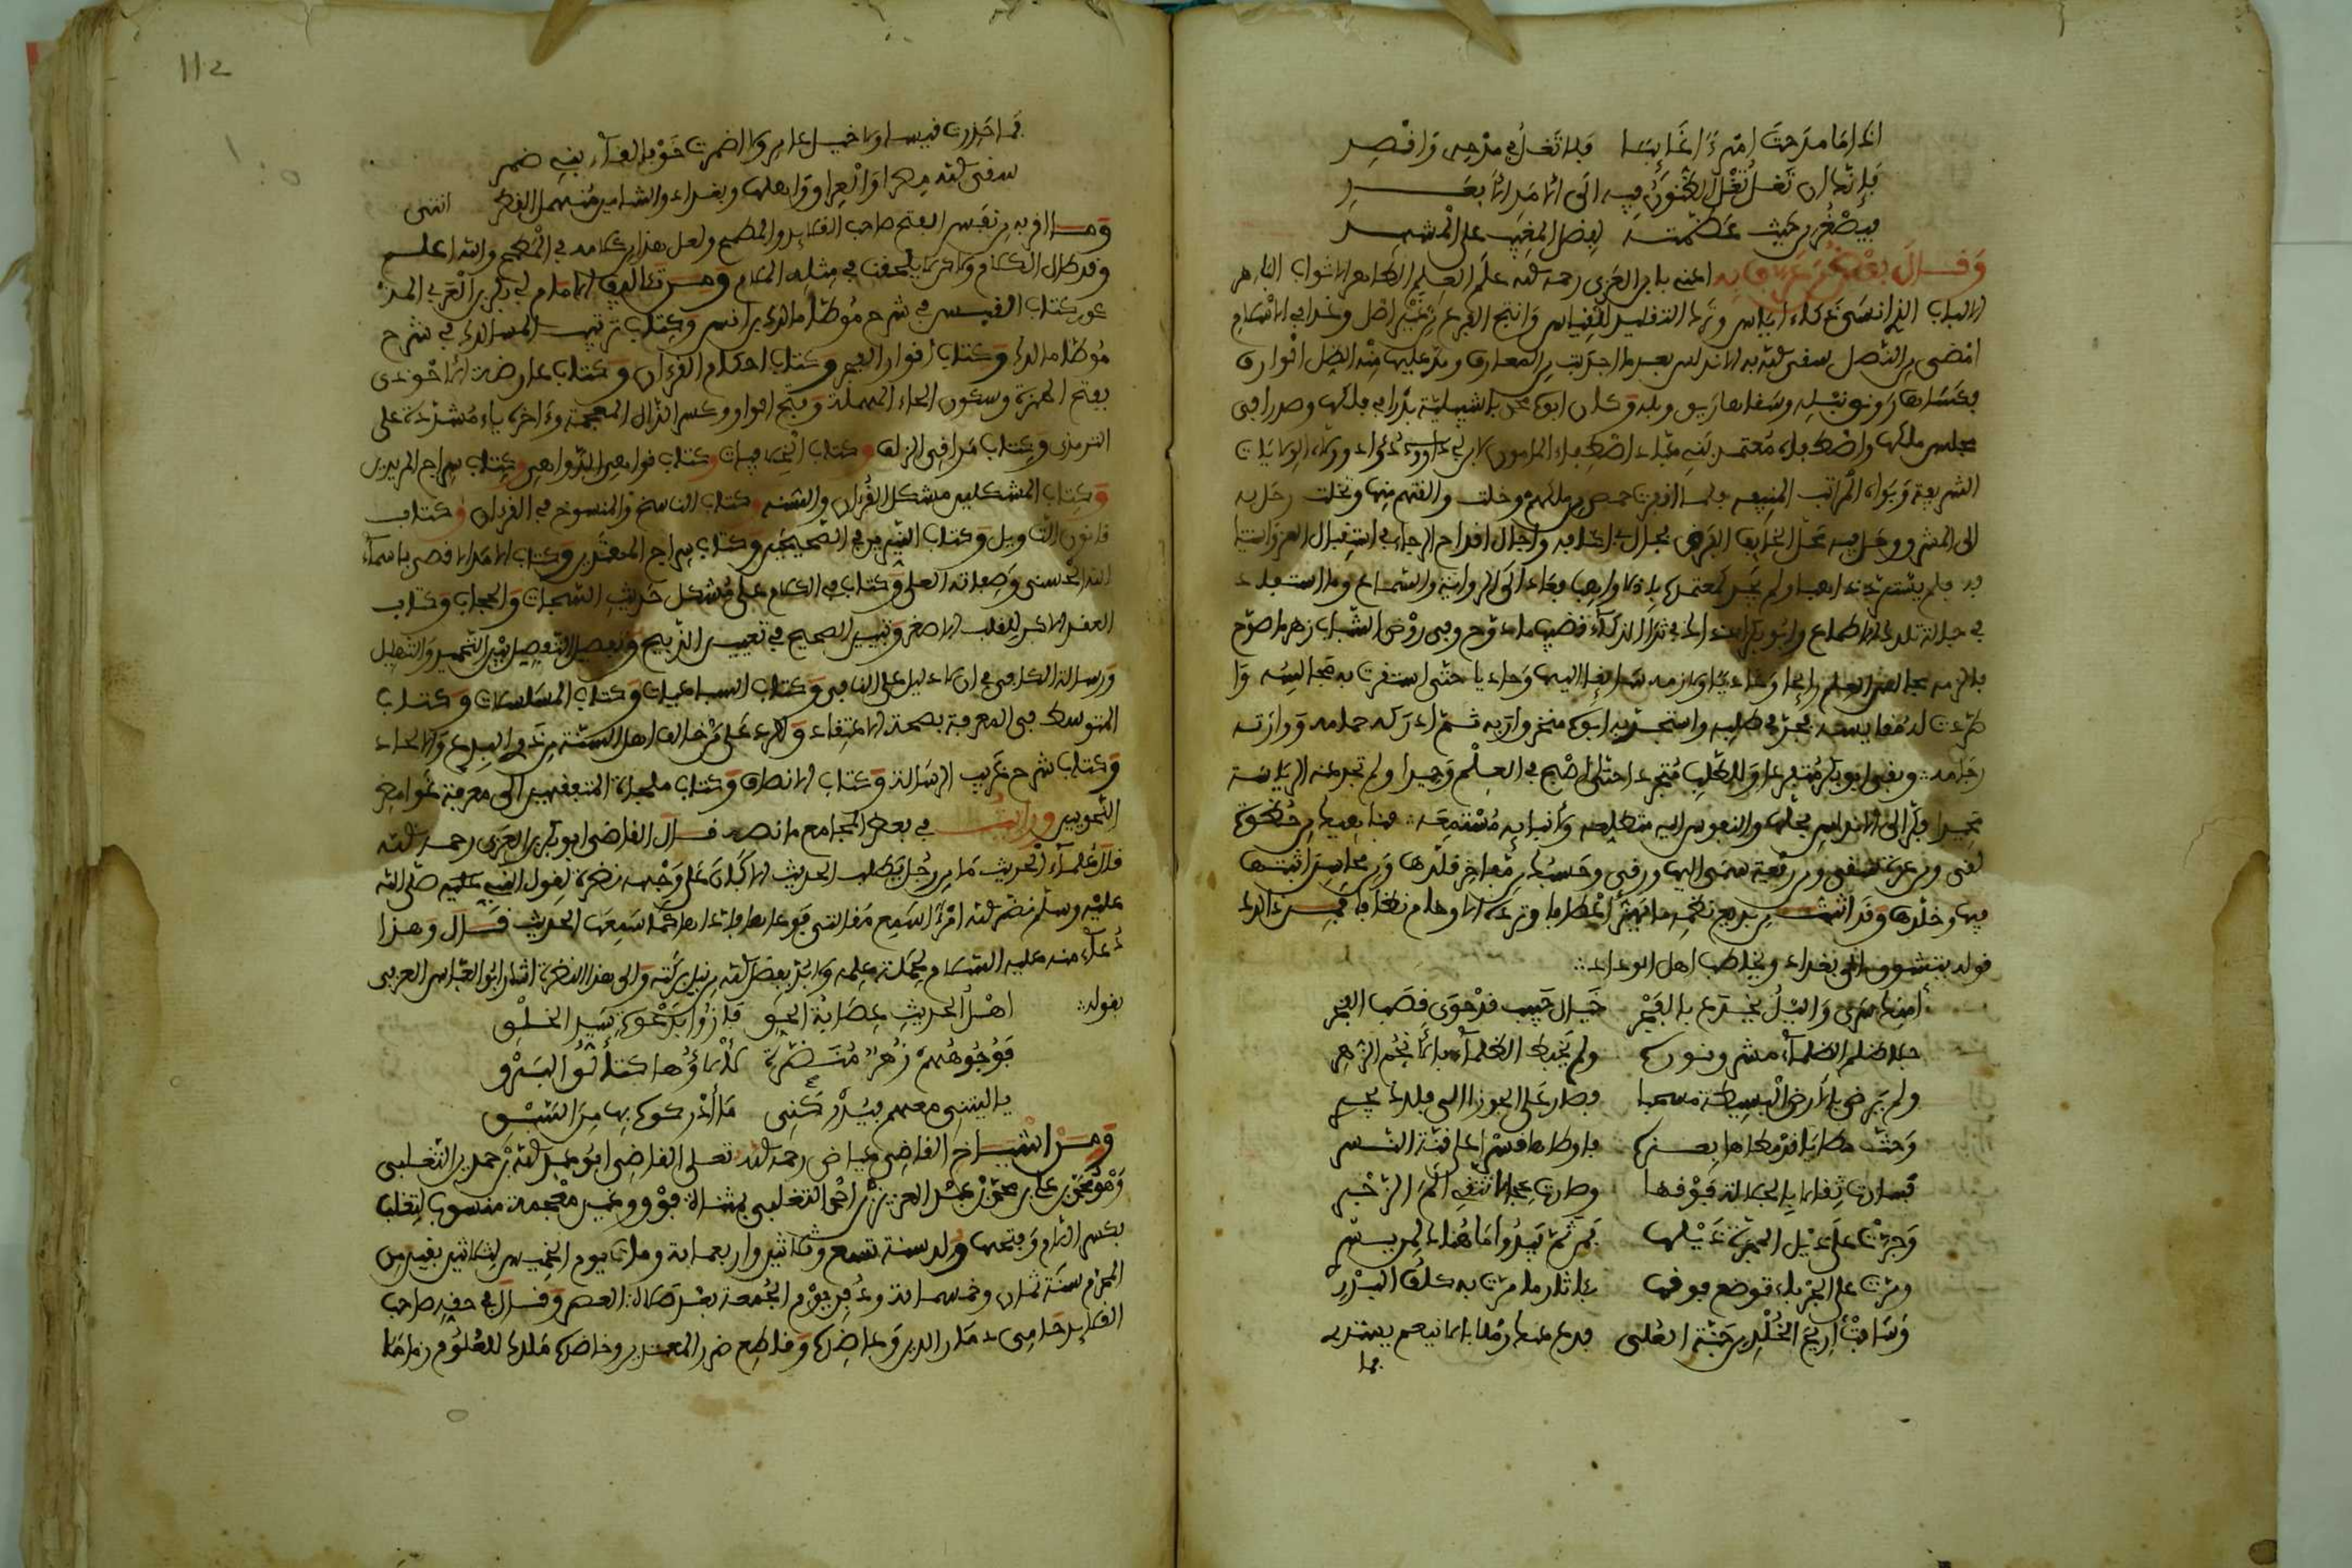 اذا ما مدحت امرءا غائبا فلا تغل في مدحه واقصد
فإنك ان تغل تغل الظنون فيه الى الامد الابعد
فيصغر من حيث عظمته لفضل المغيب على المشهد
وقال بعض من عرف به اعني بابن العربي رحمه الله علم العلم الطاهر الاثواب الباهر
الالباب الذي انسى ذكاء اياس وترك التقليد للقياس وانتج الفرع من الاصل وغدا في الاسلام
امضى من النصل سقى الله به الاندلس بعد ما اجدبت من المعارف ومد عليها منه الظل الوارف
فكساها رونق نبله وسقاها ريق وبله وكان ابوه محمد باشبيلية بدرا في فلكها وصدرا في
مجلس ملكها واصطفاه معتمد بني عباد اصطفاء المامون لابن ابي دواد وولاه الولايات
الشريفة وبواه المراتب المنيفة فلما اقفرت حمص من ملكهم وخلت والقتهم منها وتخلت رحل به
الى المشرق وحل فيه محل الخايف الفرق فجال في اكنافه واجال قداح الرجاء في استقبال العز واستيناف
به فلم يسترد ذاهبا ولم يجد كمعتمده باذلا واهبا فعاد الى الرواية والسماع وما استفاد
في حبالة تلك الاطماع وابو بكر اذ ذاك في ثرى الذكاء قضيب ما دوح وفي روض الشباب زهر ما صوح
فالزمه مجالس العلم رايحا وغاديا ولازمه سايقا اليها وحاديا حتى استقرت به مجالسه وا
طردت له مقايسه فجد في طلبه واستجد به ابوه منخرق اربه ثم ادركه حمامه ووارته
رجامه وبقي ابو بكر متفردا وللطلب متجردا حتى اصبح في العلم وحيدا ولم تجد عنه الرياسة
محيدا فكر الى الاندلس فحلها والنفوس اليه متطلعة ولانبايه مستمعة فناهيك من حظوة
لقي ومن عزة سقي ومن رفعة سمى اليها ورقى وحسبك من مفاخر قلدها ومن محاسن اثبتها
فيها وخلدها وقد اثبت من بديع نظمه ما يهز اعطافا وترده الاوهام نطافا فمن ذلك
قوله يتشوق الى بغداد ويخاطب اهل الوداد
أمنك سرى والليل يخدع بالفجر خيال حبيب قد حوى قصب الفخر
جلا ظلم الظلماء مشرق نوره ولم يخبط الظلماء بالانجم الزهر
ولم يرض بالارض البسيطة مسحبا فصار على الجوزا الى فلك يجري
وحث مطايا قد مطاها بعزة فاوطاها قسرا على قنة النسر
فصارت ثقالا بالجلالة فوقها وصارت عجالا تتقي الم الزجر
وجرت على ذيل المجرة ذيلها فمن ثم يبدوا ما هناك لمن يسري
ومرت على الجوزاء توضع فوقها فآثار ما مرت به كلف البدر
وساقت أريج الخلد من جنة العلى فدع عنك رملا بالانيعم يستذري
فما
112
فما حذرت قيسا ولا خيل عامر ولا اضمرت خوفا لقاء بني ضمر
سقى الله مصرا والعراق واهلها وبغداد والشامين منهمل القطر انتهى
وما اقربه من نفس الفتح صاحب القلايد والمطمح ولعل هذا من كلامه في المطمح والله اعلم
وقد طال الكلام ولا حرج يلحقنا في مثل هذا المقام ومن تئاليف الامام ابي بكر بن العربي المذ
كور كتاب القبس في شرح موطا مالك بن انس وكتاب ترتيب المسالك في شرح
موطا مالك وكتاب أنوار الفجر وكتاب احكام القرءان وكتاب عارضة الاحوذي
بفتح الهمزة وسكون الحاء المهملة وفتح الواو وكسر الذال المعجمة وءاخره ياء مشددة على
الترمذي وكتاب مراقي الزلف وكتاب الخلافيات وكتاب نواهي الدواهي وكتاب سراج المريدين
وكتاب المشكلين مشكل القرءان والسنة وكتاب الناسخ والمنسوخ في القرءان وكتاب
قانون التاويل وكتاب النيرين في الصحيحين وكتاب سراج المهتدين وكتاب الامد الاقصى باسماء
الله الحسنى وصفاته العلى وكتاب في الكلام على مشكل حديث السبحات والحجاب وكتاب
العقد الاكبر للقلب الاصغر وتبيين الصحيح في تعيين الذبيح وتفصيل التفضيل بين التحميد والتهليل
ورسالة الكافي في ان لا دليل على النافي وكتاب السباعيات وكتاب المسلسلات وكتاب
المتوسط في المعرفة بصحة الاعتقاد والرد على من خالف اهل السنة من ذوي البدع والالحاد
وكتاب شرح غريب الرسالة وكتاب الانصاف وكتاب ملجاة المتفقهين الى معرفة غوامض
النحويين ورايت في بعض المجامع ما نصه قال القاضي ابو بكر بن العربي رحمه الله
قال علماء الحديث ما من رجل يطلب الحديث الا كان على وجهه نضرة لقول النبي صلى الله
عليه وسلم نضر الله امرءا سمع مقالتي فوعاها فاداها كما سمعها الحديث قال وهذا
دعاء منه عليه السلام لحملة علمه ولابد بفضل الله من نيل بركته والى هذا النضرة اشار ابو العباس العزفي
بقوله اهل الحديث عصابة الحق فازوا بدعوة سيد الخلق
فوجوههم زهر منضرة لألاؤها كتألق البرق
يا ليتني معهم فيدركني ما أدركوه بها من السبق
ومن اشياخ القاضي عياض رحمه الله تعلى القاضي ابو عبد الله بن حمدين التغلبي
وهو محمد بن علي بن محمد بن عبد العزيز بن احمد التغلبي بمثناة فوق وغين معجمة منسوب لتغلب
بكسر اللام وفتحها ولد سنة تسع وثلاثين واربعماية ومات يوم الخميس لثلاث بقين من
المحرم سنة ثمان وخمسماية ودفن يوم الجمعة بعد صلاة العصر وقال في حقه صاحب
القلايد حامي ذمار الدين وعاضده وقاطع ضرر المعتدين وخاضده ملك للعلوم زماما